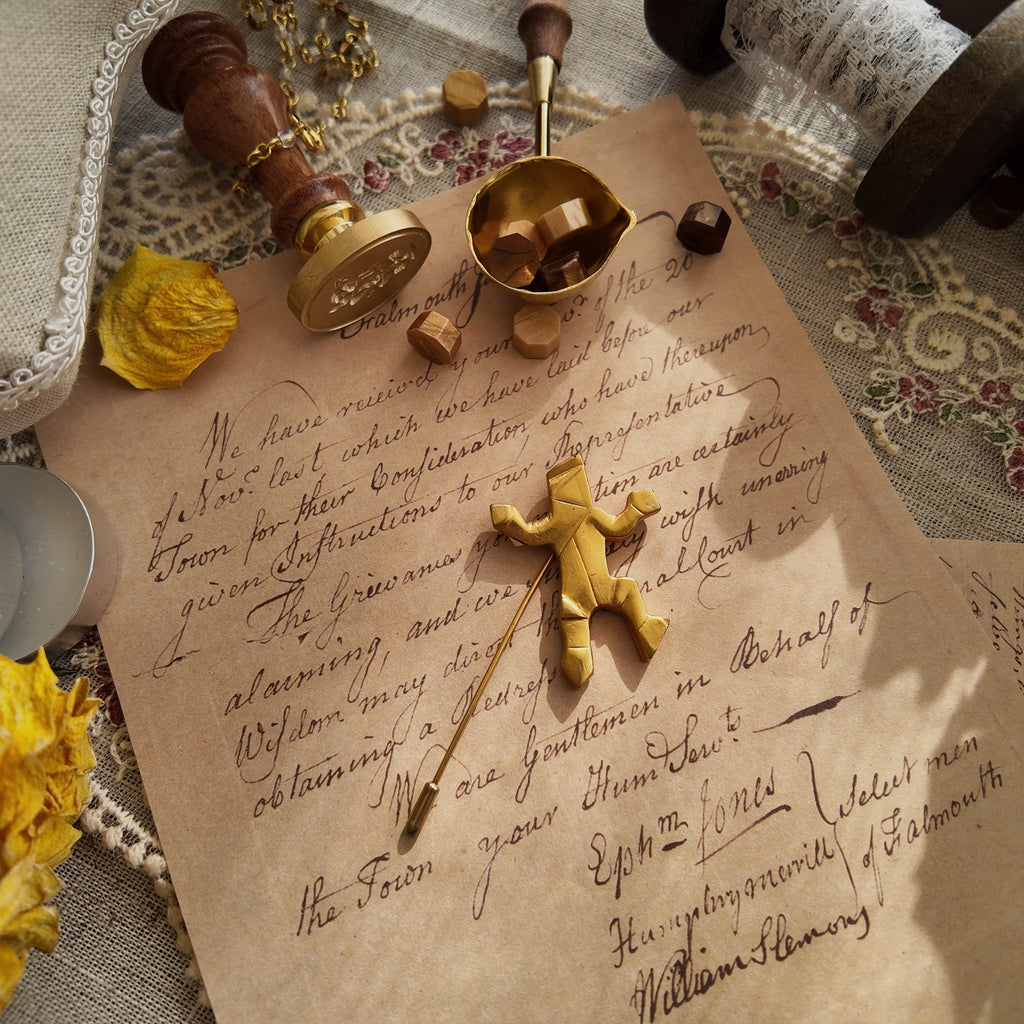 Falmouth
of the 20
We have receiv'd your
of Nov.r last which we have laid before our
Town for their Consideration who have thereupon
given Instructions to our Representative
The Grievances you tion are certainly
alarming, and we ly wish unerring
Wisdom may direct th ral Court in
obtaining a Redress
We are Gentlemen in Behalf of
the Town your Hum Serv.ts
Eph.m Jones
Humphry merrill
William Slemons
Select men
of Falmouth